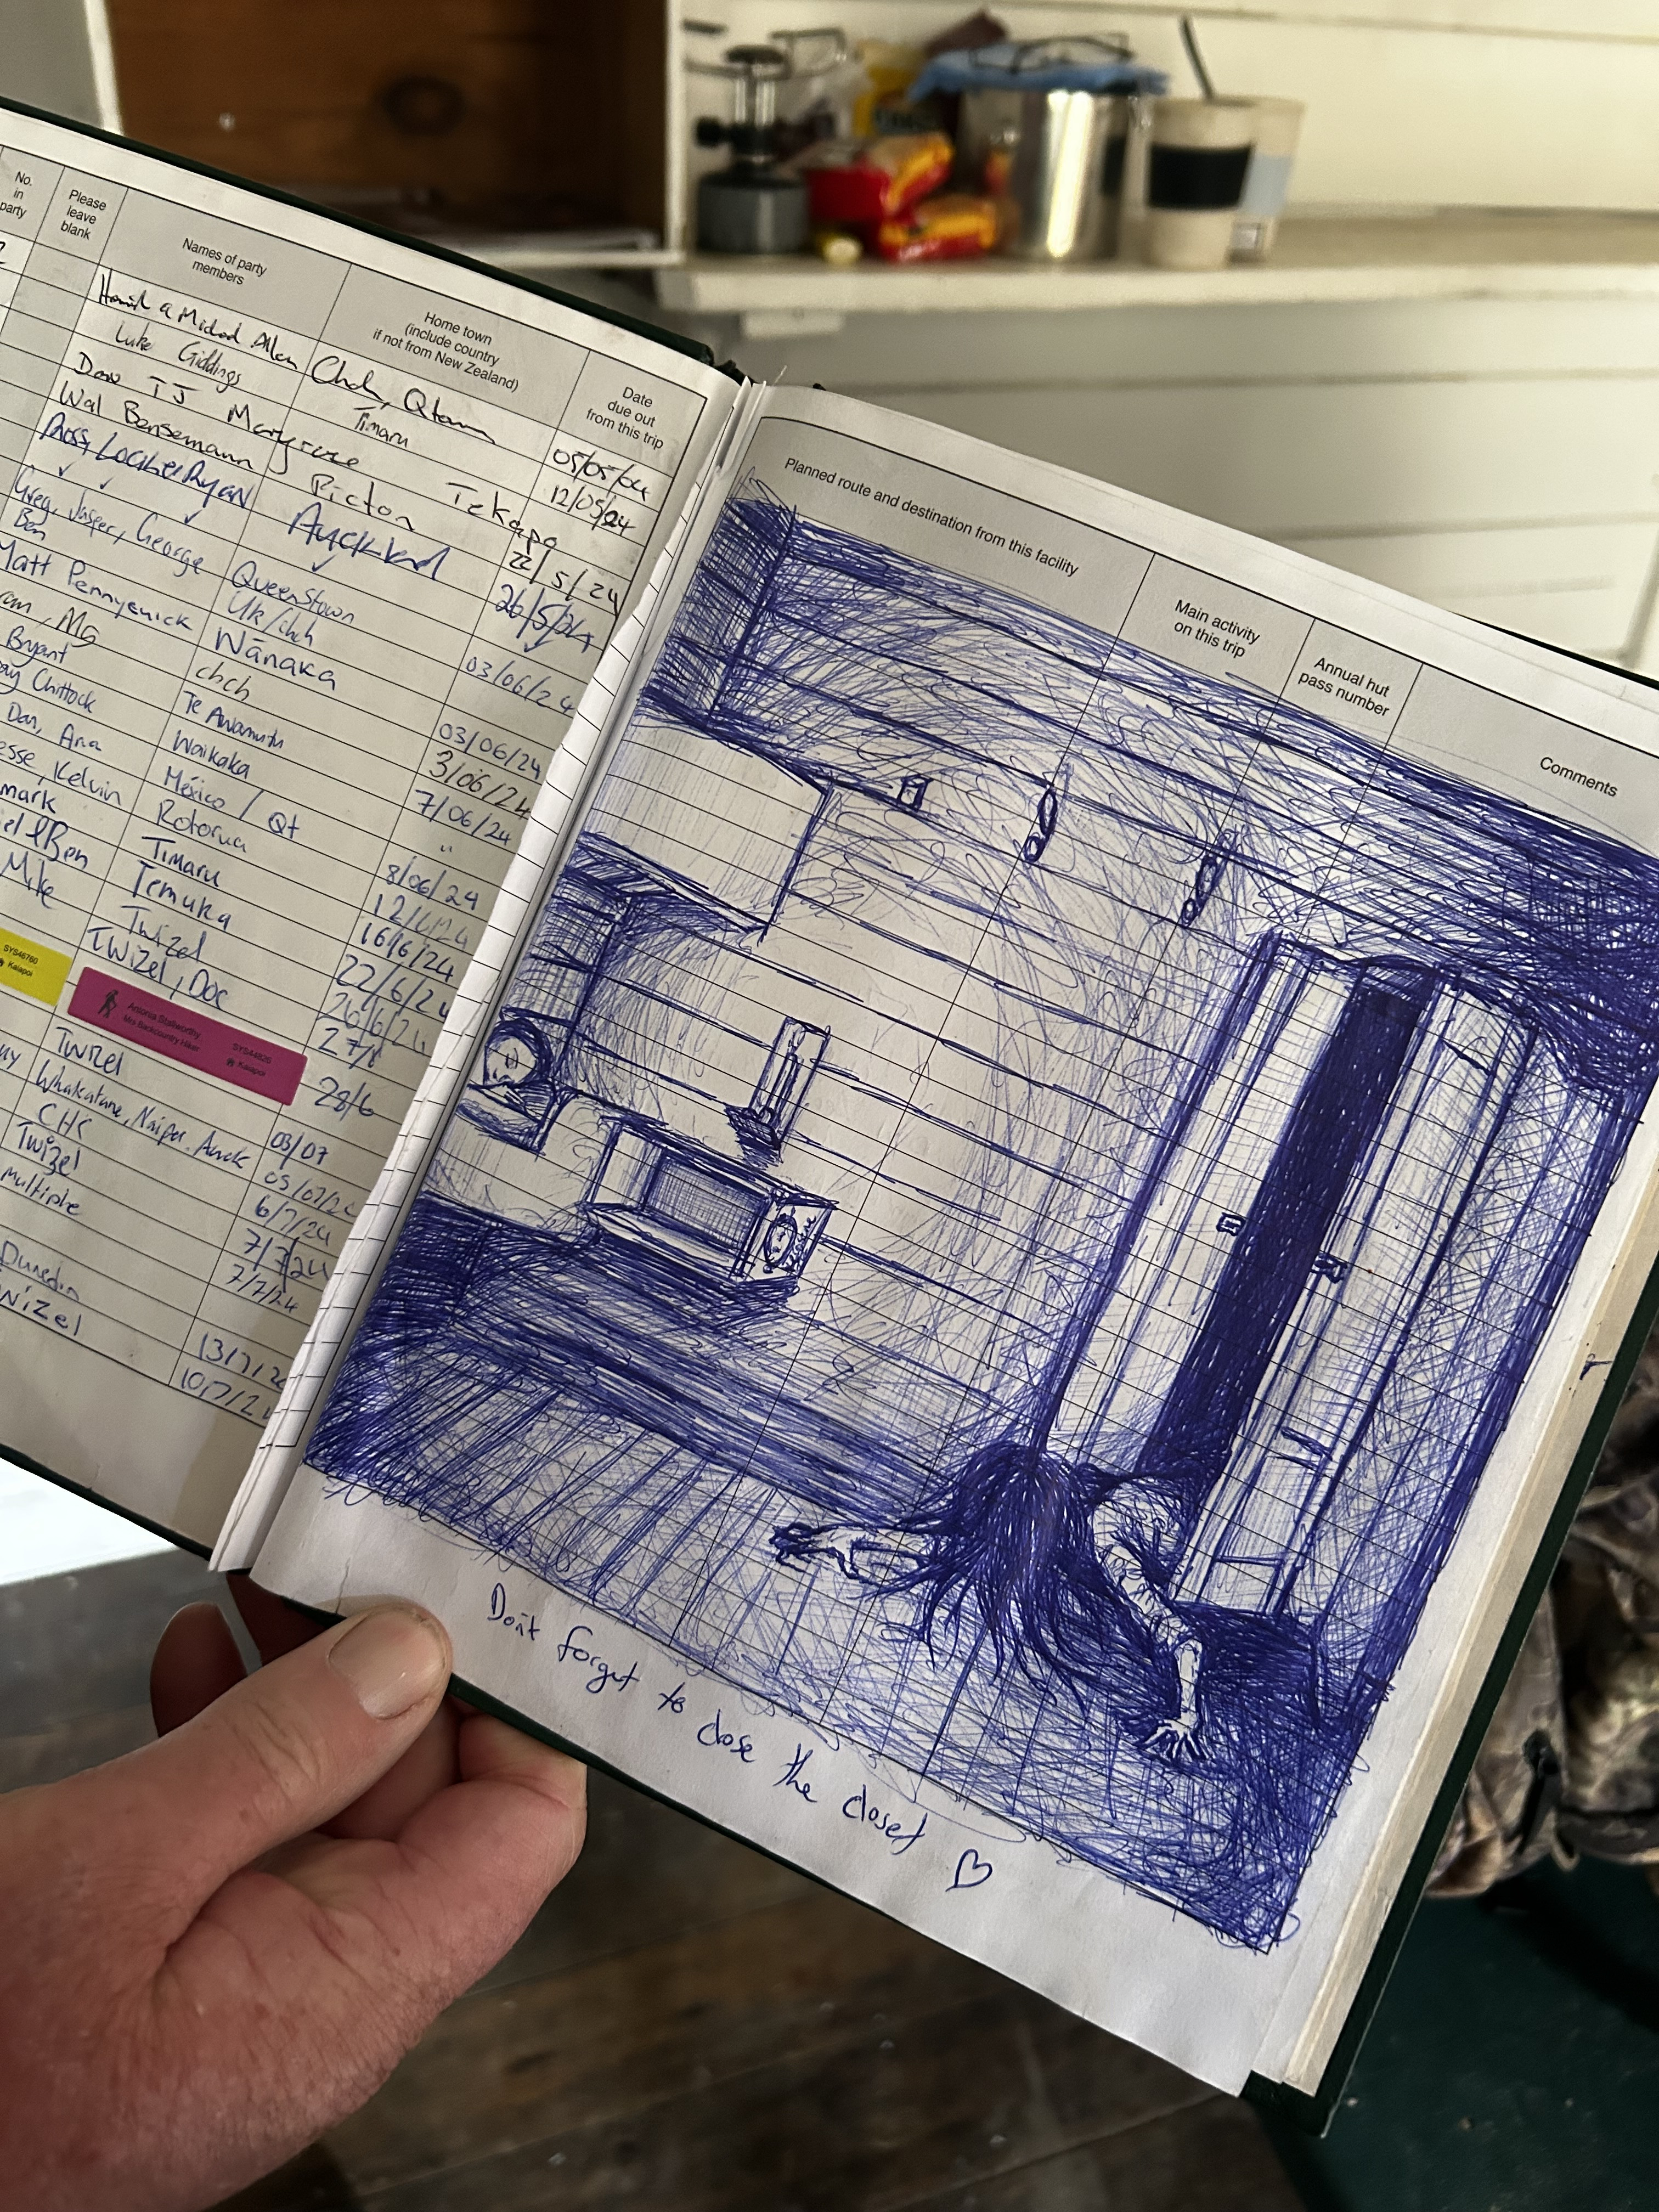 No.
in
party
Please
leave
blank
Names of party
members
Home town
(include country
if not from New Zealand)
Date
due out
from this trip
Allen Chch, Qtown 05/05/04
Luke Giddings Timaru 12/05/24
Dow TJ Maryrose Tekapo 22/5/24
Wal Bensemann Picton 26/5/24
Ross, Lochie Ryan Auckland
Greg, Jasper, George Queenstown 03/06/24
Ben UK/chch
Matt Pennycuick Wānaka 03/06/24
Mo chch 3/06/24
Bryant Te Awamutu 7/06/24
Chittock Waikaka "
Dan, Ana México / Qt 8/06/24
Jesse, Kelvin Rotorua
mark Timaru 16/6/24
Ben Temuka 22/6/24
Mike Twizel
Twizel, Doc 27/6
SYS46760
Kaiapoi
Antonia Stallworthy
Mrs Backcountry Hiker
SYS44826
Kaiapoi
28/6
Twizel 03/07
Whakatane, Napier, Auck 05/07/24
CHC 6/7/24
Twizel 7/7/24
multiple 7/7/24
Dunedin 13/7/24
Twizel 10/7/24
Planned route and destination from this facility
Main activity
on this trip
Annual hut
pass number
Comments
Don't forget to close the closet ♡